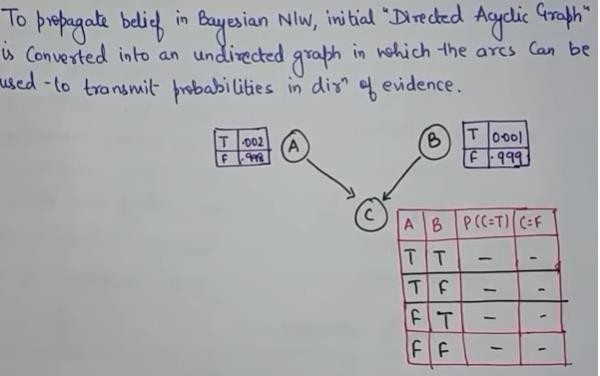 To propagate belief in Bayesian N/w, initial "Directed Acyclic Graph"
is Converted into an undirected graph in which the arcs Can be
used to transmit probabilities in dirⁿ of evidence.
T .002 A B T 0.001
F .998 F .999
C
A B P(C=T) C=F
T T - -
T F - -
F T - -
F F - -